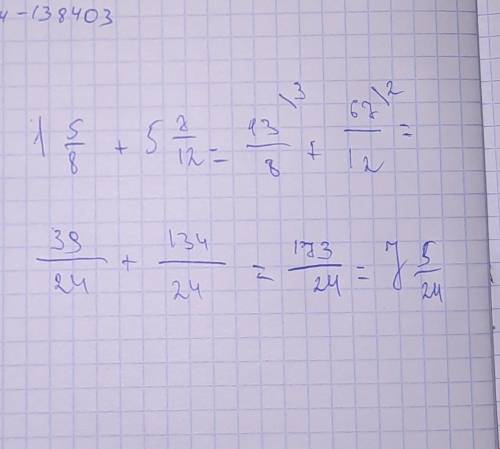 4-138403
1 5/8 + 5 7/12 = 13/8 \3 + 67/12 \2 =
39/24 + 134/24 = 173/24 = 7 5/24